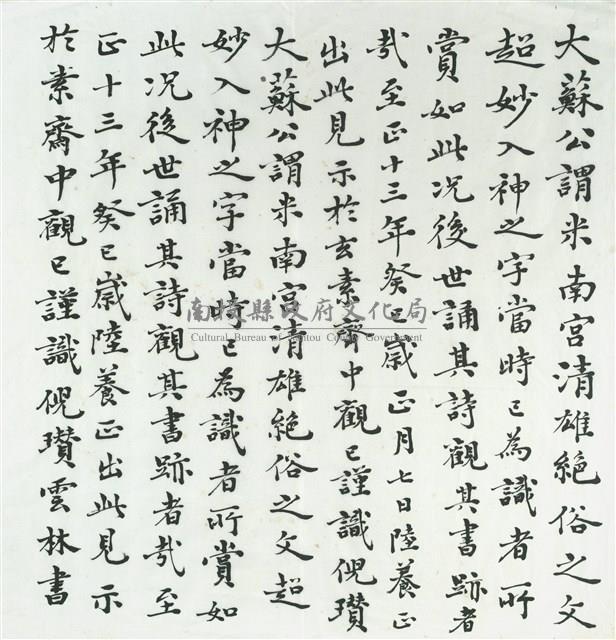 大蘇公謂米南宮清雄絕俗之文
超妙入神之字當時已為識者所
賞如此况後世誦其詩觀其書跡者
㢤至正十三年癸巳歲正月七日陸養正
出此見示於玄素齋中觀已謹識倪瓚
大蘇公謂米南宮清雄絕俗之文超
妙入神之字當時已為識者所賞如
此况後世誦其詩觀其書跡者㢤至
正十三年癸巳歲陸養正出此見示
於素齋中觀已謹識倪瓚雲林書
南投縣政府文化局
Cultural Bureau of Nantou County Government